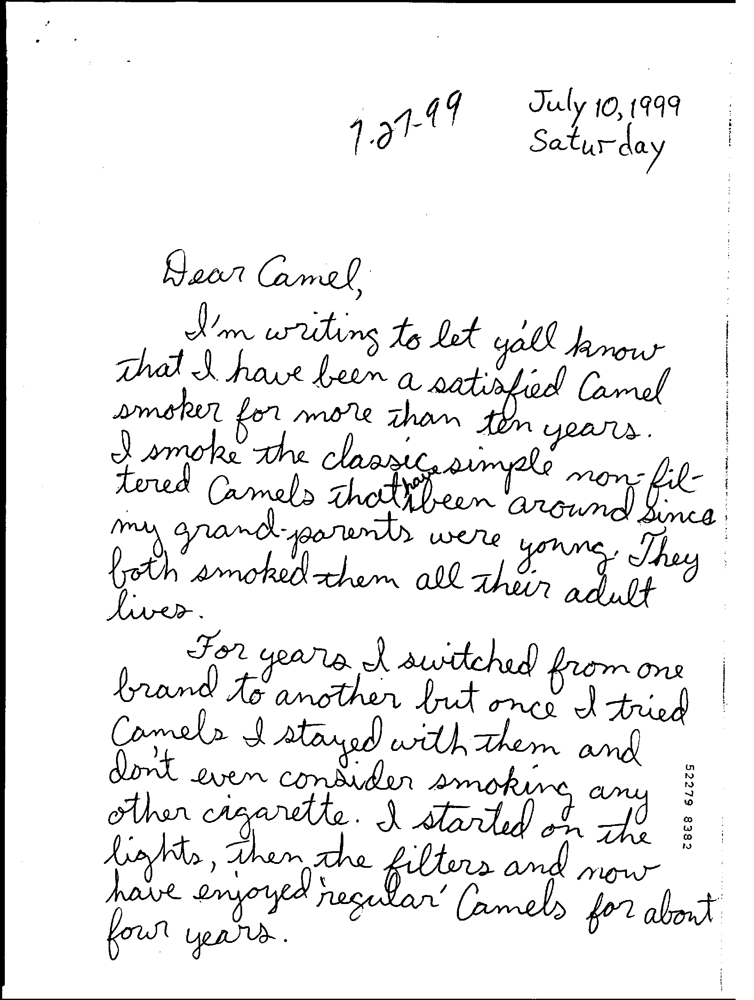 7-27-99
July 10, 1999
Saturday
Dear Camel,
I'm writing to let ya'll know
that I have been a satisfied Camel
smoker for more than ten years.
I smoke the classic, simple non-fil-
tered Camels that have been around since
my grand-parents were young. They
both smoked them all their adult
lives.
For years I switched from one
brand to another but once I tried
Camels I stayed with them and
don't even consider smoking any
other cigarette. I started on the
lights, then the filters and now
have enjoyed 'regular' Camels for about
four years.
52279 8382